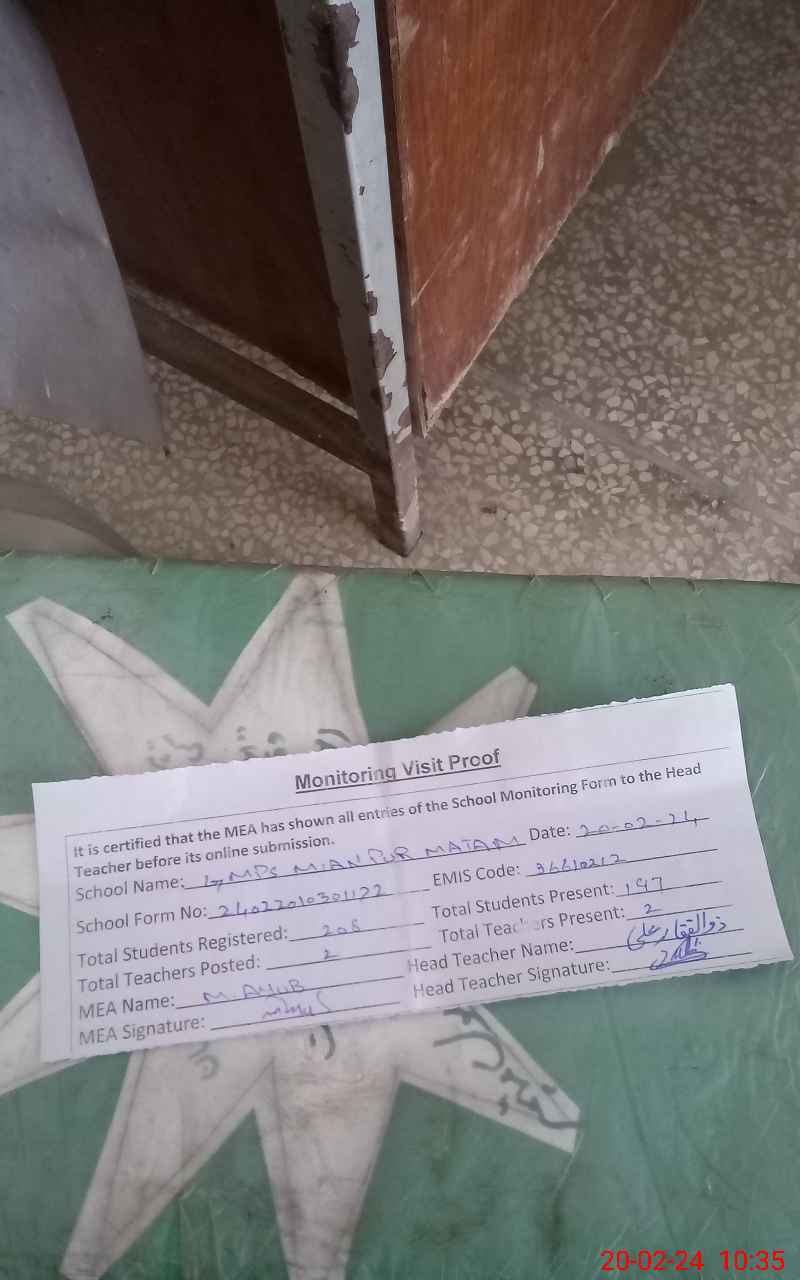 Monitoring Visit Proof
It is certified that the MEA has shown all entries of the School Monitoring Form to the Head
Teacher before its online submission.
School Name: GMPS MIANPUR MATAM Date: 20-02-24
School Form No: 24022010301122 EMIS Code: 36610212
Total Students Registered: 208 Total Students Present: 197
Total Teachers Posted: 2 Total Teachers Present: 2
MEA Name: M. AYUB Head Teacher Name: ذوالفقار علی
MEA Signature: Head Teacher Signature:
20-02-24 10:35